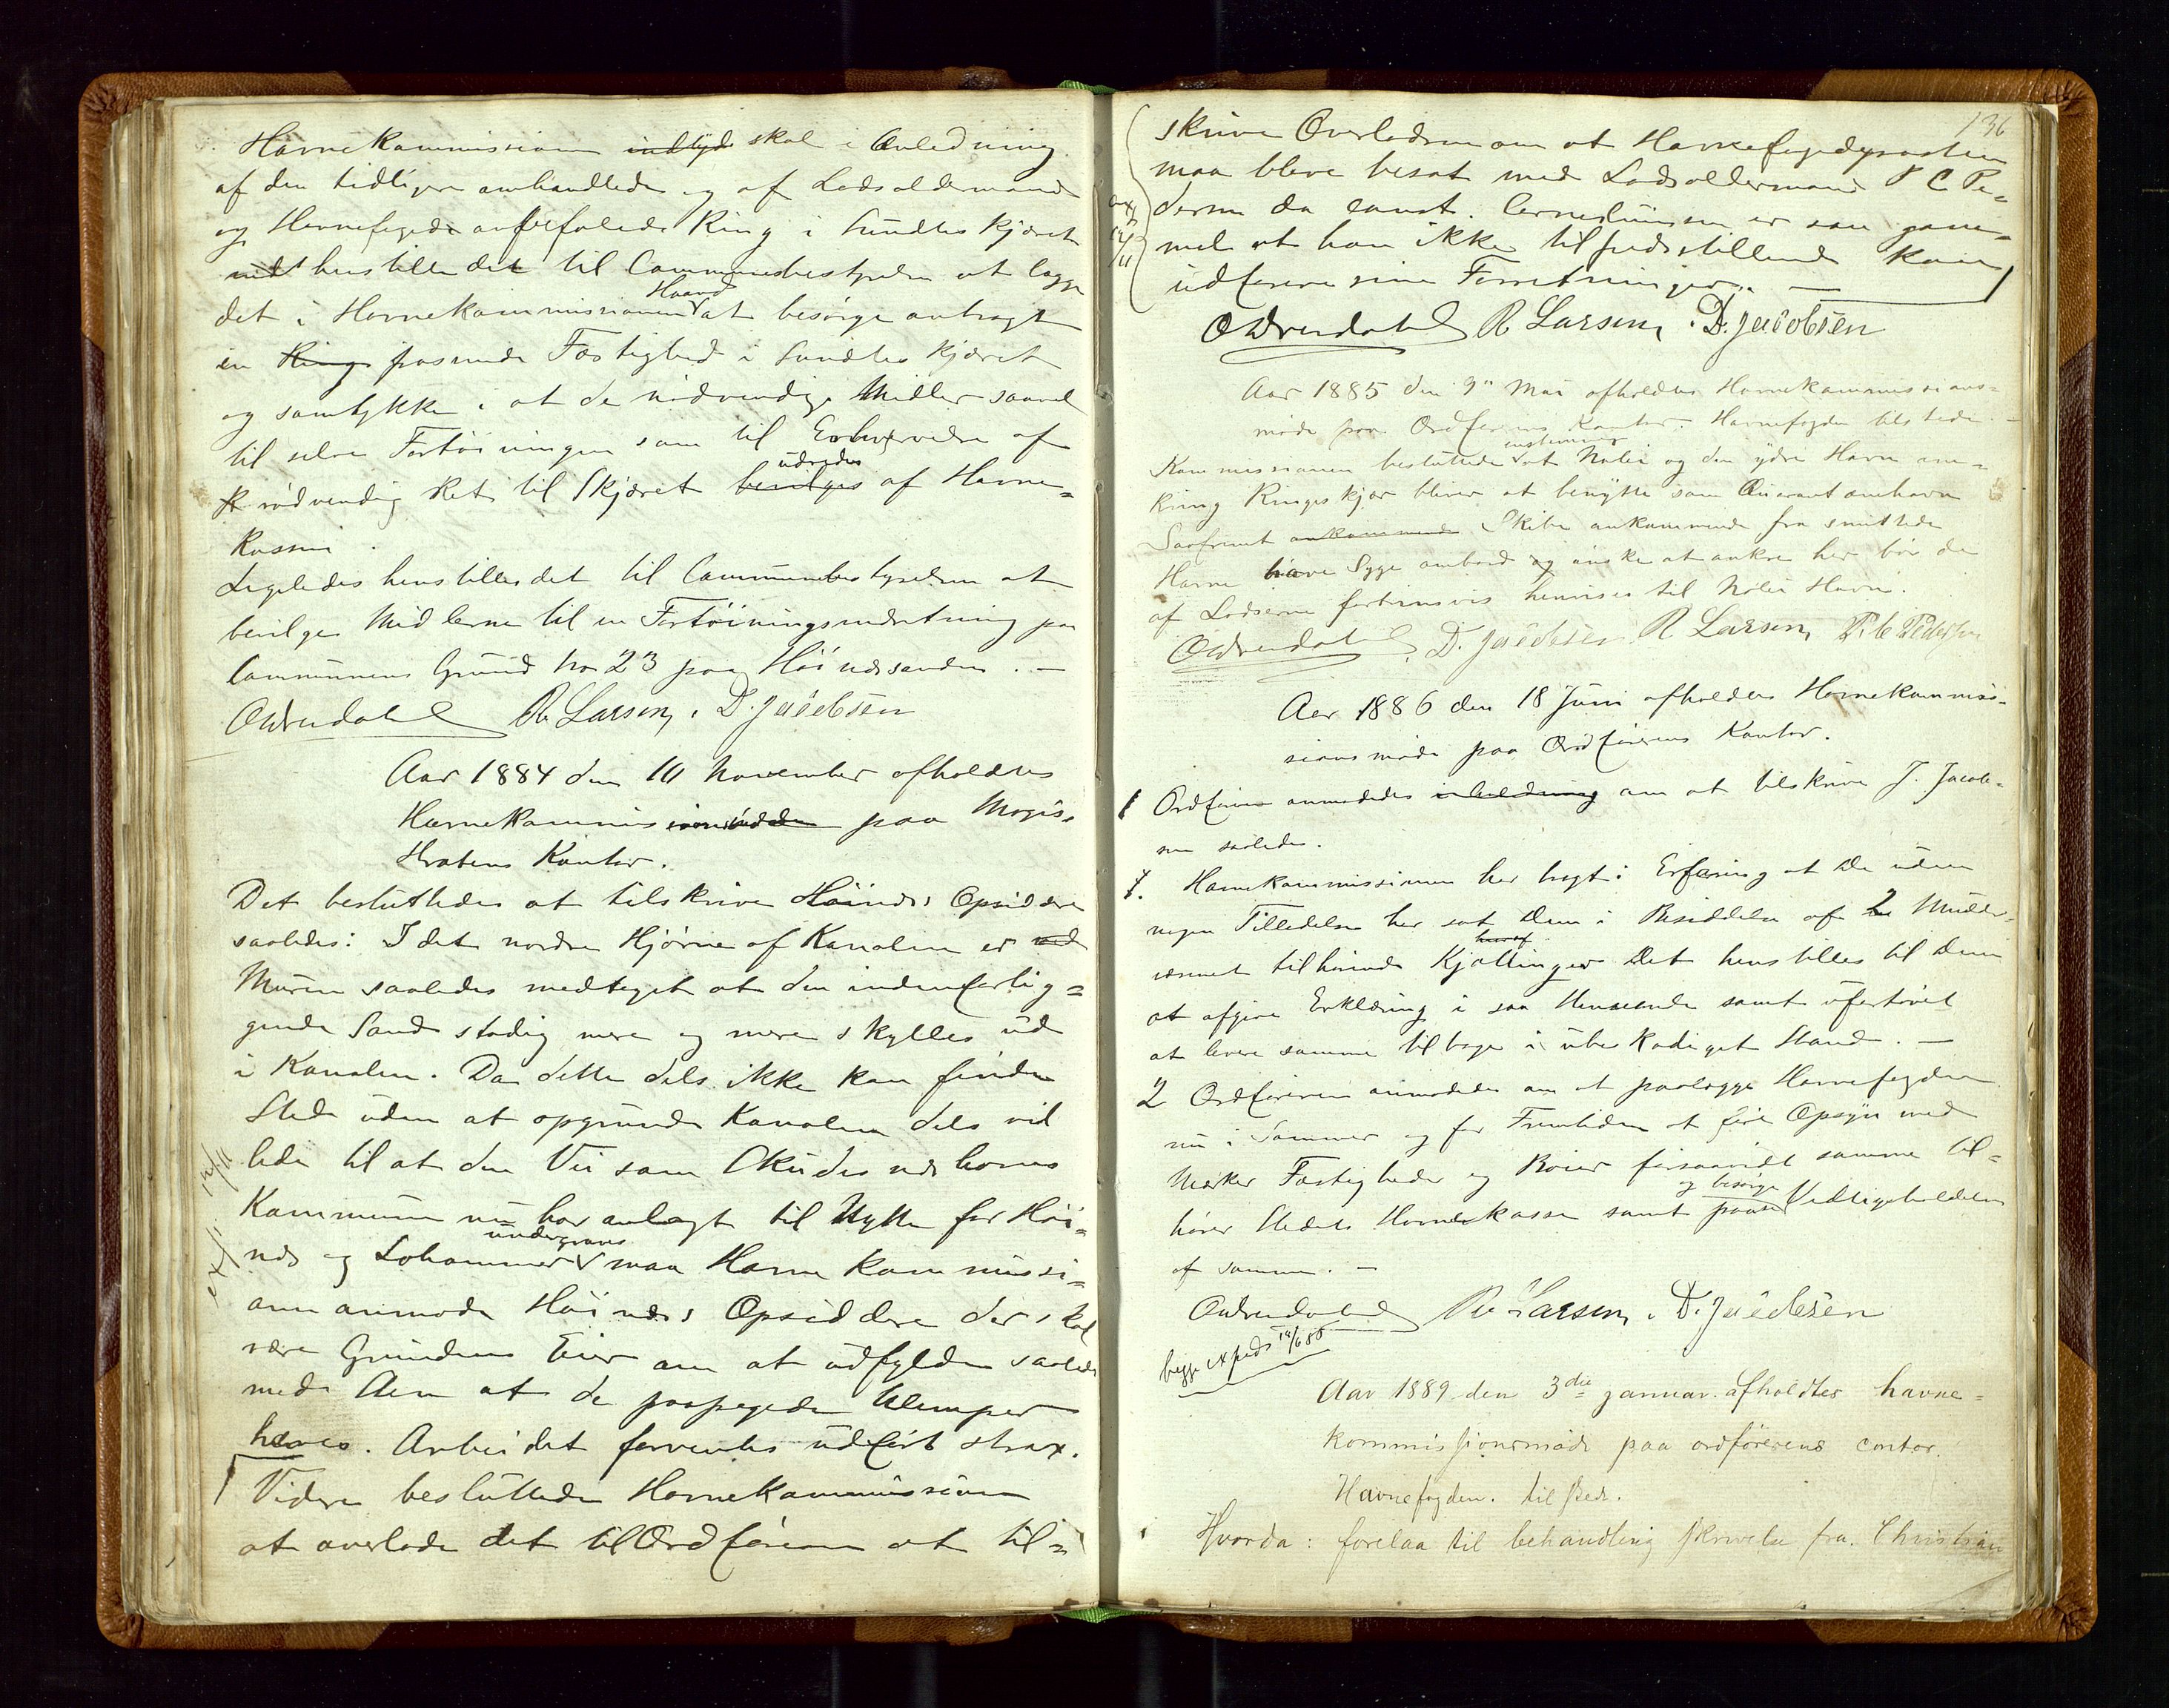 Havnekommissionen indtyd skal i Anledning
af den tidligere omhandlede og af Lodsoldermand
og Havnefoged anbefalede Ring i Sundtes Kjæret
henstille det til Communebestyrelsen at lægge
det i Havnekommissionens Haand at besørge anbragt
en Ring passende Fæstighed i Sundtes Kjæret
og samtykke i at de nødvendige Midler saavel
til selve Fortøiningen som til Erhvervelse af
nødvendig Ret til Skjæret bevilges udredes af Havne-
kassen.
Ligeledes henstilles det til Communebestyrelsen at
bevilge Midlerne til en Fortøiningsindretning paa
Communens Grund No 23 paa Høinessanden. —
R Larsen, D. Jacobsen
Aar 1884 den 10 November afholdtes
Havnekommis paa Magis-
tratens Kontor.
Det besluttedes at tilskrive Høines Opsiddere
saaledes: I det nordre Hjørne af Kanalen er
Muren saaledes medtaget at den indenforlig-
gende Sand stadig mere og mere skylles ud
i Kanalen. Da dette dels ikke kan finde
Sted uden at opgrunde Kanalen dels vil
lede til at den Vei som Skudesneshavns
Kommune nu har anlagt til Nytte for Høi-
nes og Lohammer undergraves maa Havnekommissi-
onen anmode Høines Opsiddere der skal
være Grundens Eier om at udfylde saaledes
med Aen at de paapegede Ulemper
hæves. Arbeidet forventes udført strax.
Videre besluttede Havnekommissionen
at overlade det til Ordføreren at til-
136
skrive Overlodsen om at Havnefogedposten
maa blive besat med Lodsoldermand P C Pe-
dersen da const. Corneliussen er saa gam-
mel at han ikke tilfredsstillende kan
udføre sine Forretninger. —
R Larsen, D. Jacobsen
Aar 1885 den 9" Mai afholdtes Havnekommissions-
møde paa Ordførerens Kontor. Havnefogden tilstede. —
Kommissionen besluttede enstemmig at Nølei og den ydre Havn om-
kring Ringeskjær bliver at benytte som Quarantænehavn
Saafremt ankommende Skibe ankommende fra smittede
Havne have Syge ombord og ønske at ankre her bør de
af Lodserne fortrinsvis henvises til Nølei Havn.
D. Jacobsen R Larsen, P. C Pedersen
Aar 1886 den 18 Juni afholdtes Havnekommis-
sionsmøde paa Ordførerens Kontor.
1 Ordføreren anmodedes om at tilskrive J. Jacob-
sen saaledes.
Havnekommissionen har bragt i Erfaring at De uden
nogen Tilladelse har sat Dem i Besiddelse af 2 Mudder-
væsenet tilhørende Kjættinger Det henstilles til Dem
at afgive Erklæring i saa Henseende samt ufortøvet
at levere samme tilbage i ubeskadiget Stand. —
2 Ordføreren anmodedes om at paalægge Havnefogden
nu i Sommer og for Fremtiden at føre Opsyn med
Mærker Fæstigheder og Bøier forsaavidt samme til-
hører Stedets Havnekasse samt paase og besørge Vedligeholdelsen
af samme. —
R Larsen, D. Jacobsen
begge expeds 19/6 86
Aar 1889 den 3die januar afholdtes havne-
kommissjonsmøde paa ordførerens contor.
Havnefogden. tilsted.
Hvorda: forelaa til behandling skrivelse fra. Christian